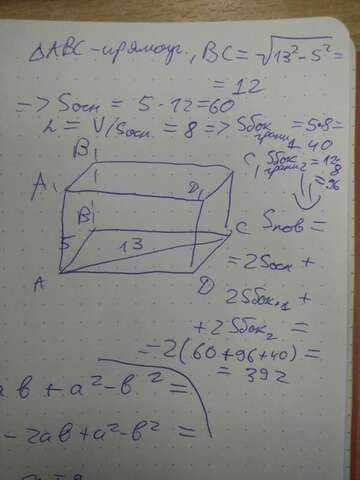 △ABC - прямоуг., BC = √13² - 5² =
= 12
=> Sосн = 5 · 12 = 60
h = V/Sосн = 8 => Sбок грани1 = 5·8 = 40
Sбок грани2 = 12·8 = 96
B1
A1
D1
C1
B
5
13
C
A
D
Sпов =
= 2Sосн +
2Sбок1 +
+ 2Sбок2 =
= 2(60 + 96 + 40) =
= 392
ab + a² - b² =
- 2ab + a² - b² =